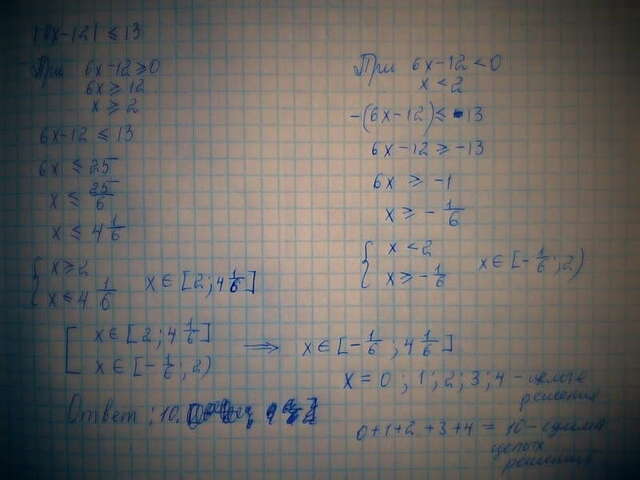 |6x-12| ≤ 13
При 6x-12≥0
6x ≥ 12
x ≥ 2
6x-12 ≤ 13
6x ≤ 25
x ≤ 25/6
x ≤ 4 1/6
{ x≥2
x≤4 1/6
x ∈ [2; 4 1/6]
При 6x-12<0
x < 2
-(6x-12) ≤ 13
6x-12 ≥ -13
6x ≥ -1
x ≥ - 1/6
{ x < 2
x ≥ - 1/6
x ∈ [- 1/6; 2)
[ x ∈ [2; 4 1/6]
x ∈ [- 1/6; 2)
⟹ x ∈ [- 1/6; 4 1/6]
x = 0; 1; 2; 3; 4 - целые
решения
0+1+2+3+4 = 10 - сумма
целых
решений
Ответ: 10.